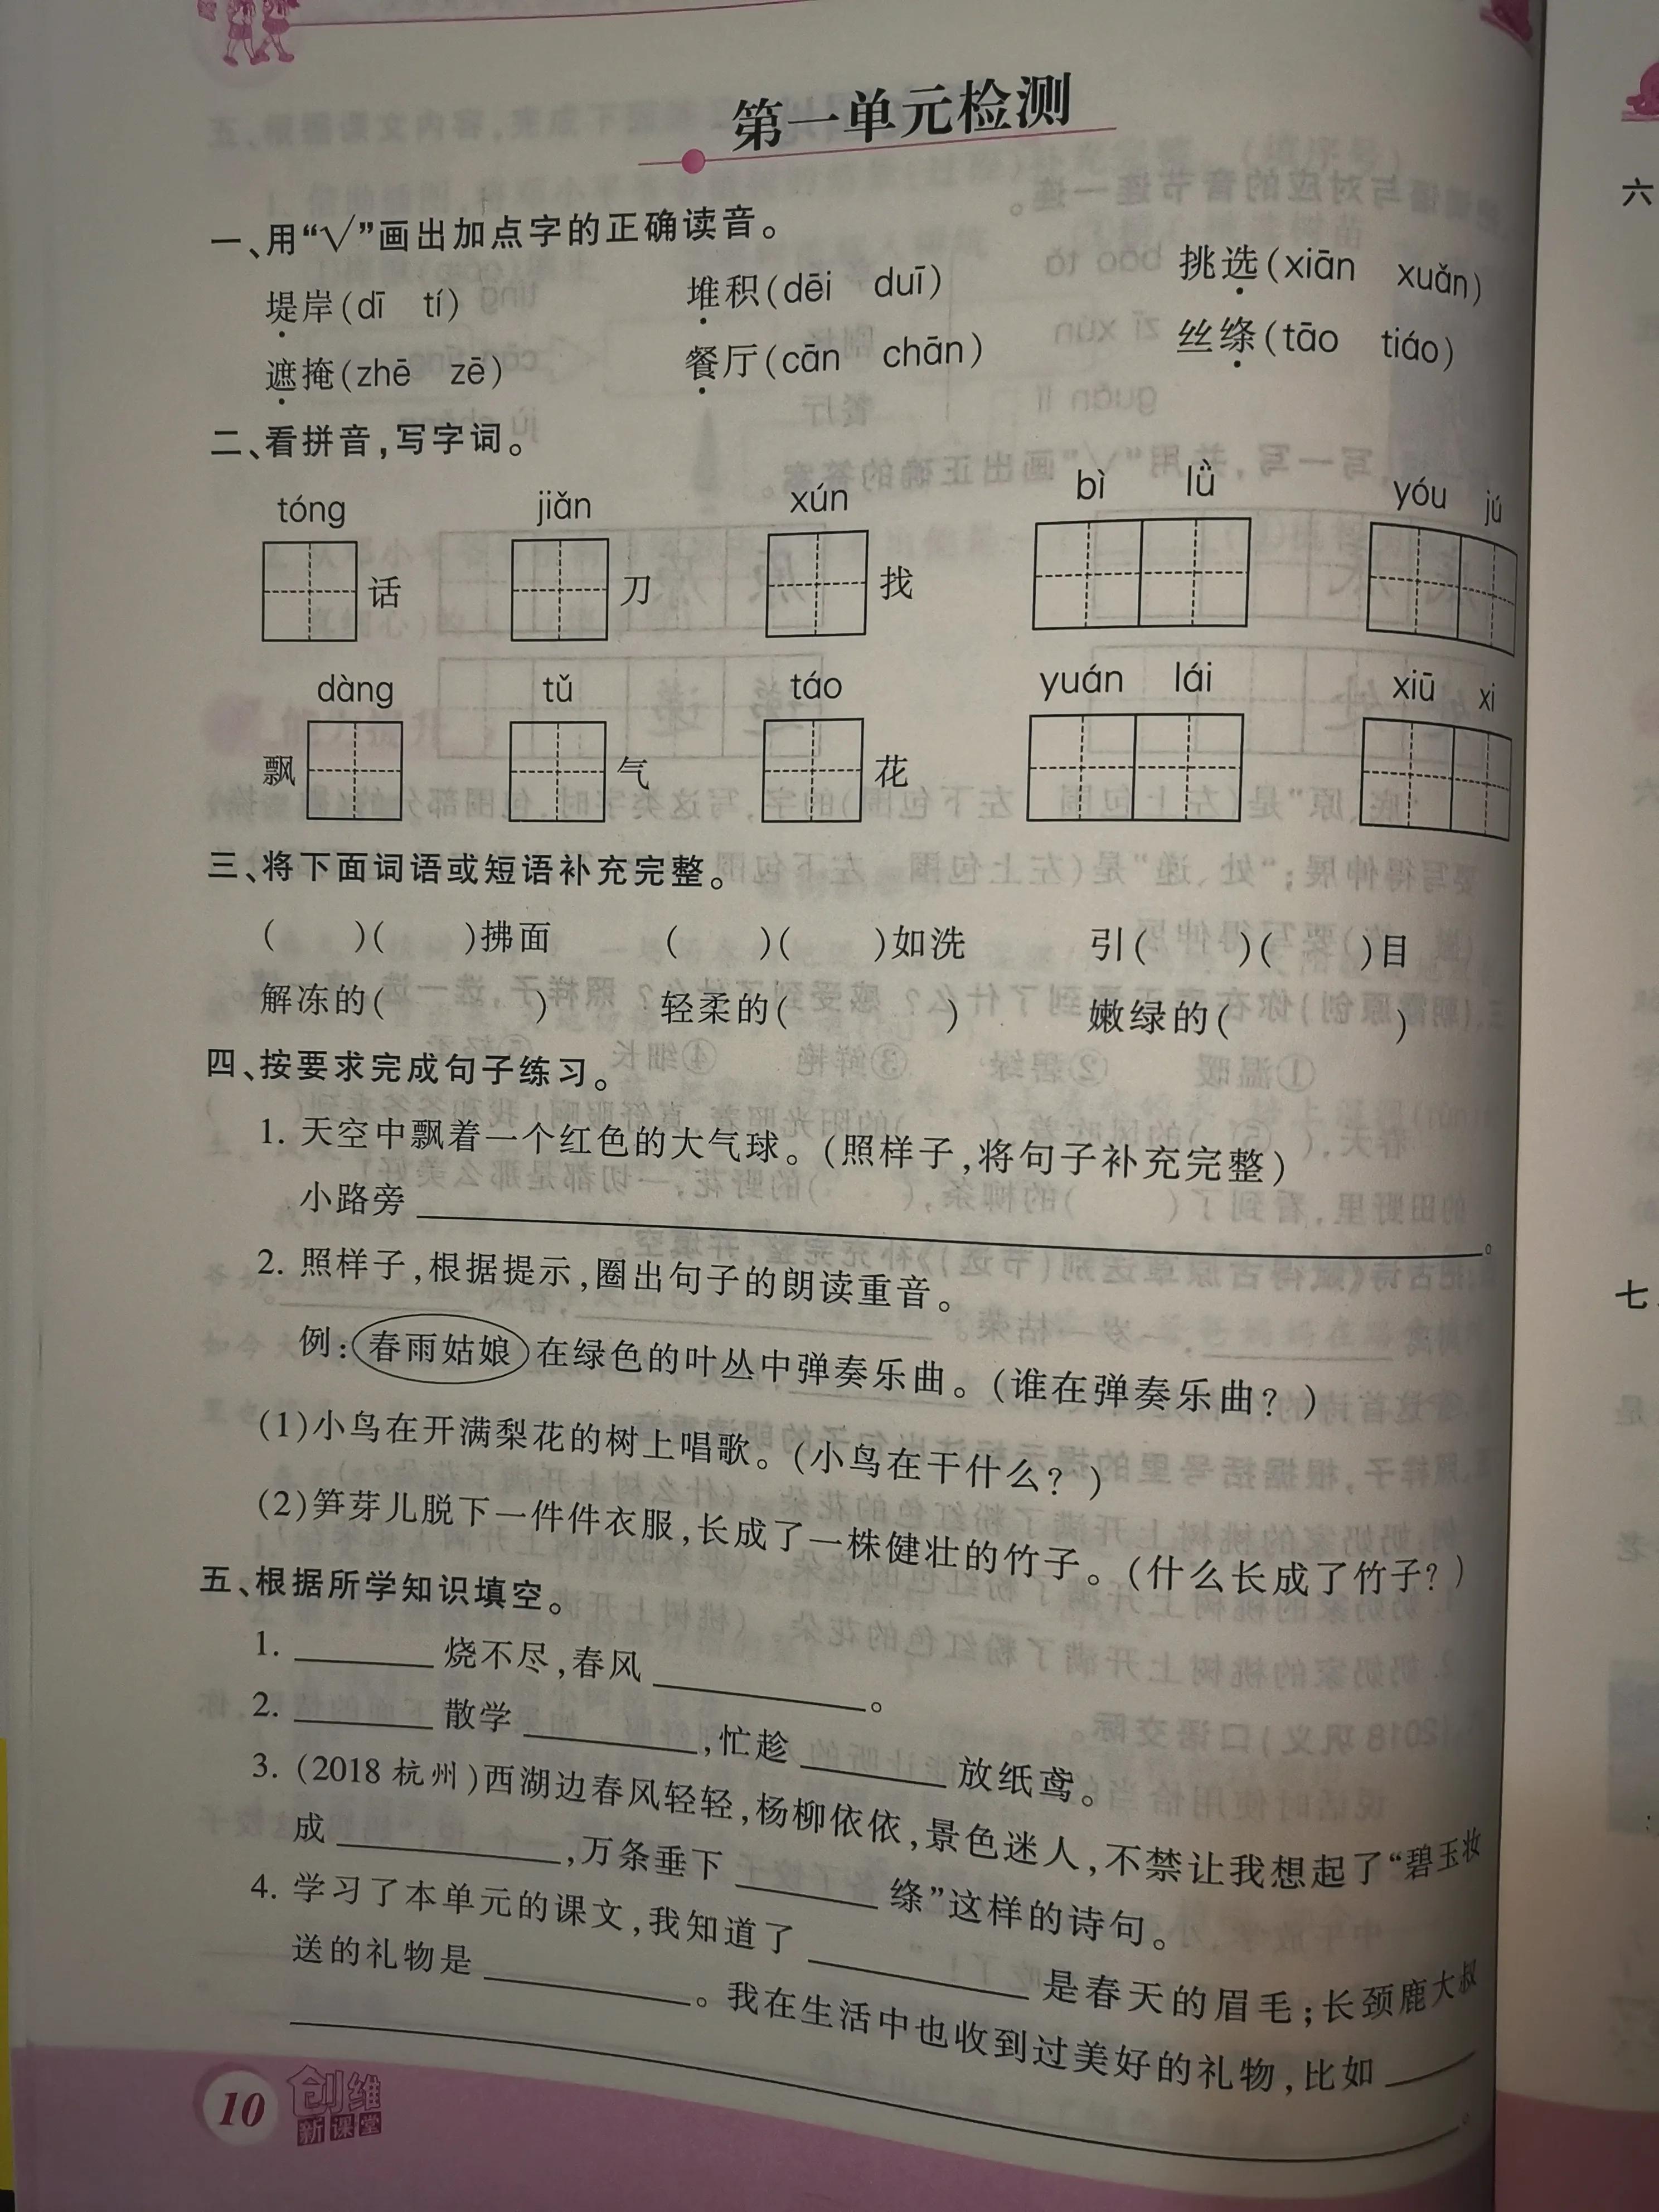 第一单元检测
一、用“√”画出加点字的正确读音。
堤岸(dī tí) 堆积(dēi duī) 挑选(xiān xuǎn)
遮掩(zhē zē) 餐厅(cān chān) 丝绦(tāo tiáo)
二、看拼音,写字词。
tóng jiǎn xún bì lǜ yóu jú
话 刀 找
dàng tǔ táo yuán lái xiū xi
飘 气 花
三、将下面词语或短语补充完整。
( )( )拂面 ( )( )如洗 引( )( )目
解冻的( ) 轻柔的( ) 嫩绿的( )
四、按要求完成句子练习。
1. 天空中飘着一个红色的大气球。(照样子,将句子补充完整)
小路旁 。
2. 照样子,根据提示,圈出句子的朗读重音。
例:春雨姑娘在绿色的叶丛中弹奏乐曲。(谁在弹奏乐曲?)
(1)小鸟在开满梨花的树上唱歌。(小鸟在干什么?)
(2)笋芽儿脱下一件件衣服,长成了一株健壮的竹子。(什么长成了竹子?)
五、根据所学知识填空。
1. 烧不尽,春风 。
2. 散学 ,忙趁 放纸鸢。
3. (2018 杭州)西湖边春风轻轻,杨柳依依,景色迷人,不禁让我想起了“碧玉妆
成 ,万条垂下 绦”这样的诗句。
4. 学习了本单元的课文,我知道了 是春天的眉毛;长颈鹿大叔
送的礼物是 。我在生活中也收到过美好的礼物,比如
。
10 创维
新课堂
六
七
是
老